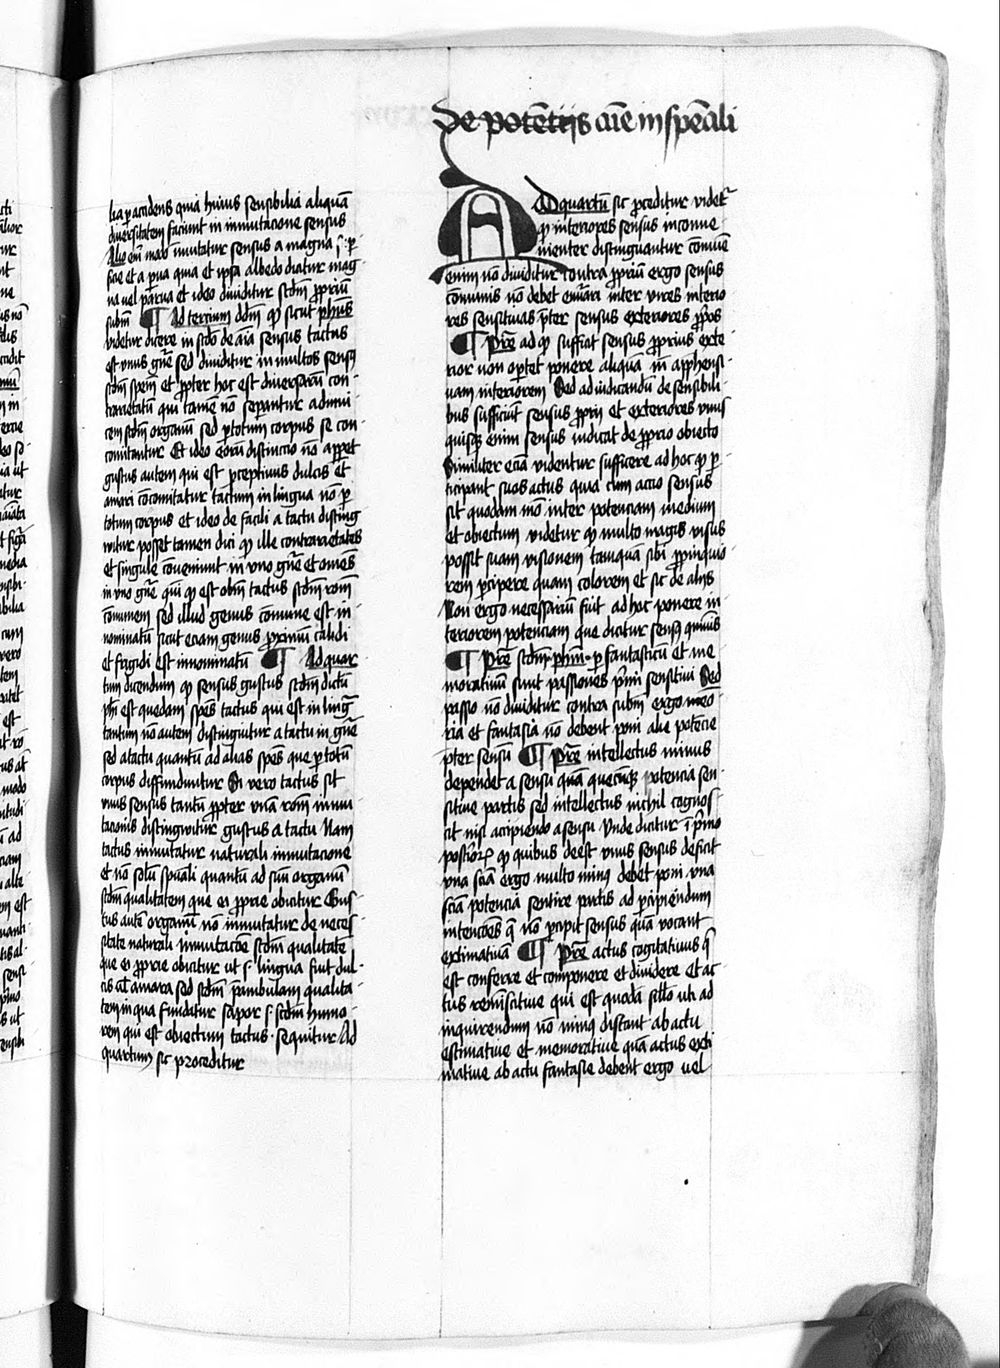 De potētijs aīe in spēcīali
lia p accidens quia huius sensibilia aliquā
diversitatem faciunt in inmutacione sensus
Alio em̄ modo īmutatur sensus a magna s̄. p
ficie et a pua quia et ipsa albedo dicitur mag
na vel parua et ideo diuiditur scdm̄ ppriū
subm̄ ¶ Ad tercium ddm̄ qꝫ sicut phūs
videtur dicere in scdo de aīa sensus tactus
est vnus gn̄e sed diuiditur in multos sensꝯ
scdm̄ spēm et ppter hoc est diuersarū con
trarietatū qui tamē nō sepantur adinui
cem scdm̄ organū sed p totum corpus se con
comitantur Et ideo eorū distinctio nō appet
gustus autem qui est pceptiuus dulcis et
amari cōcomitatur tactum in lingua nō p
totum corpus et ideo de facili a tactu disting
uitur posset tamen dici qꝫ ille contrarietates
et singule conueniunt in vno gn̄e et omēs
in vno gn̄e qui qꝫ est obm̄ tactus scdm̄ rom̄
cōmunem sed illud genus cōmune est in
nominatū sicut eciam genus pximū calidi
et frigidi est innominatū ¶ Ad quar
tum dicendum qꝫ sensus gustus scdm̄ dictū
phī est quedam spēs tactus qui est in lingᷓ
tantum nō autem distinguitur a tactu in gn̄e
sed a tactu quantū ad alias spēs que p totū
corpus diffunduntur Si vero tactus sit
vnus sensus tantū ppter vnā rom̄ inmu
tacionis distinguitur gustus a tactu Nam
tactus inmutatur naturali inmutacione
et nō solū spūali quantū ad suū organū
scdm̄ qualitatem que ei pprie obicitur Gus
tus autē organū nō inmutatur de neces
sitate naturali inmutacōe scdm̄ qualitatē
que ei pprie obicitur ut s. lingua fiat dul
cis ul̄ amara sed scdm̄ pambulam qualita
tem in qua fundatur sapor s scdm̄ humo
rem qui est obiectum tactus . sequitur Ad
quartum sic proceditur
Ad quartū sic pceditur videtᷣ
qꝫ interiores sensus inconue
nienter distinguantur cōmūe
enim nō diuiditur contra ppriū ergo sensus
cōmunis nō debet enūari inter vires interio
res sensitiuas pter sensus exteriores ppos
¶ Pre ad qꝫ sufficit sensus pprius exte
rior non oportet ponere aliquā īn apphensi
uam interiorem Sed ad iudicandū de sensibili
bus sufficiūt sensus pprij et exteriores vnus
quisqꝫ enim sensus iudicat de pprio obiecto
Similiter eciā videntur sufficere ad hoc qꝫ p
cipiant suos actus quia cum actio sensus
sit quodam mō inter potenciam medium
et obiectum videtur qꝫ multo magis visus
possit suam visionem tamquā sibi ppinquio
rem pcipere quam colorem et sic de alijs
Non ergo necessariū fuit ad hoc ponere in
teriorem potenciam que dicitur sensꝯ cōmūis
¶ Pre scdm̄ . phm̄ . p fantasticū et me
moratiuū sunt passiones pmi sensitiui Sed
passio nō diuiditur contra subm̄ ergo meō
ria et fantasia nō debent poni alie potēcie
pter sensū ¶ Pre intellectus minus
dependet a sensu quā quecūqꝫ potencia sen
sitiue partis sed intellectus nichil cognos
cit nisi accipiendo a sensu Vnde dicitur ī pmo
posterioꝝ qꝫ quibus deest vnus sensus deficit
vna sciā ergo multo minꝯ debet poni vna
sciā potencia sensitiue ptis ad pcipiendum
intencōes qᷓ nō pcipit sensus quā vocant
extimatiuā ¶ Pre actus cogitatiuus qᷓ
est conferre et componere et diuidere et ac
tus reminiscitiue qui est quodā sillo uti ad
inquirendum nō minꝯ distant ab actu
estimatiue et memoratiue quā actus exti
matiue ab actu fantasie debent ergo vel